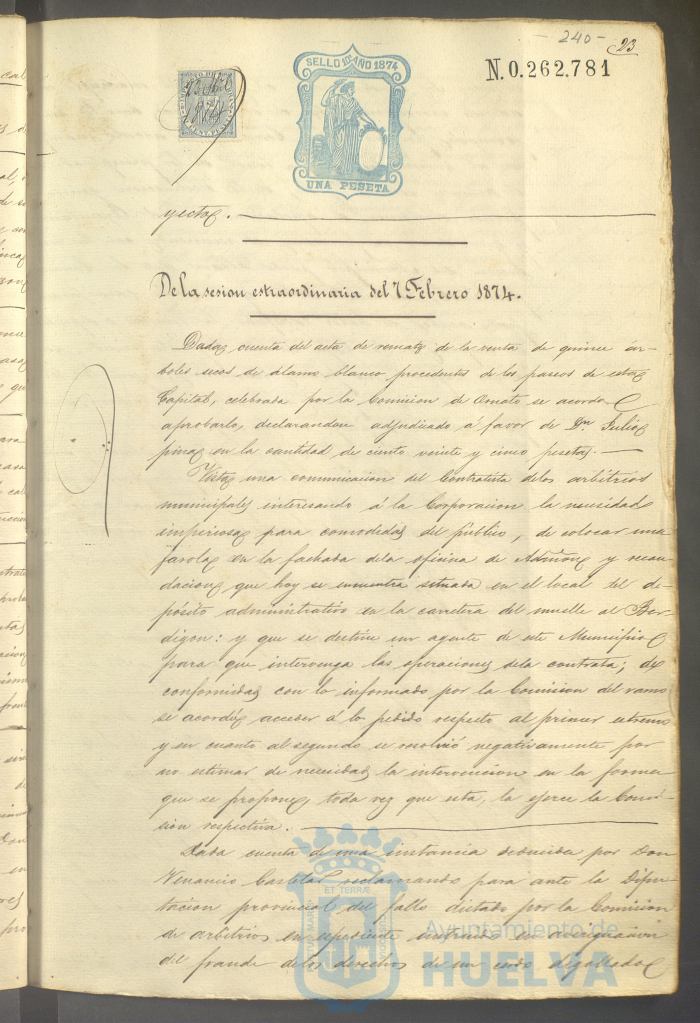 - 240 -
23
N.0.262.781
SELLO 10º AÑO 1874
UNA PESETA
1874
yectos.
De la sesion extraordinaria del 7 Febrero 1874.
Dada cuenta del acta de remate de la venta de quince ár-
boles secos de álamo blanco procedentes de los paseos de esta
Capital, celebrada por la Comision de Ornato se acordó
aprobarlo, declarandon adjudicado á favor de Dn Julio
pinaz en la cantidad de ciento veinte y cinco pesetas.
Vista una comunicacion del Contratista delos arbitrios
municipales interesando á la Corporacion la necesidad
imperiosa para comodidad del público, de colocar una
farola en la fachada dela oficina de Admon y recau-
dacion que hoy se encuentra situada en el local del de-
pósito administrativo en la carretera del muelle al Ber-
digon: y que se destine un agente de este Municipio
para que intervenga las operaciones dela contrata; de
conformidad con lo informado por la Comision del ramo
se acordó acceder á lo pedido respecto al primer estremo
y en cuanto al segundo se resolvió negativamente por
no estimar de necesidad la intervencion en la forma
que se propone, toda vez que esta, la ejerce la Comi-
sion respectiva.
Dada cuenta de una instancia deducida por Don
Venancio Castela reclamando para ante la Dipu-
tacion provincial del fallo dictado por la Comision
de arbitrios en espediente instruido en averiguacion
del fraude delos derechos de un cerdo degollado
ET TERRÆ
Ayuntamiento de
HUELVA